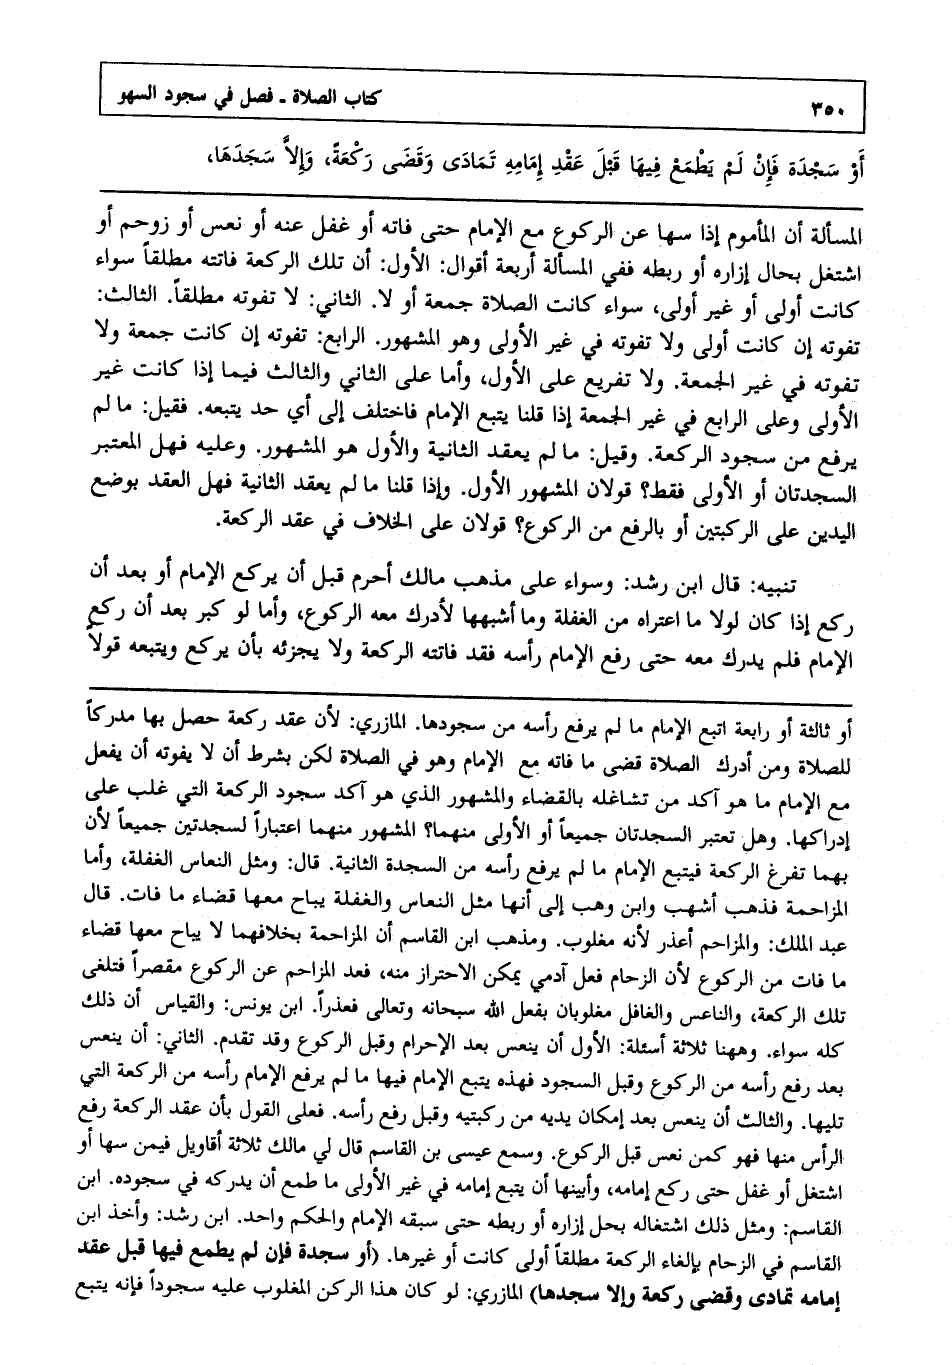 ٣٥٠
كتاب الصلاة ـ فصل في سجود السهو
أَوْ سَجْدَة فَإِنْ لَمْ يَطْمَعْ فِيهَا قَبْلَ عَقْدِ إِمَامِهِ تَمَادَى وَقَضَى رَكْعَةً، وَإِلاَّ سَجَدَهَا،
المسألة أن المأموم إذا سها عن الركوع مع الإمام حتى فاته أو غفل عنه أو نعس أو زوحم أو
اشتغل بحال إزاره أو ربطه ففي المسألة أربعة أقوال: الأول: أن تلك الركعة فاتته مطلقاً سواء
كانت أولى أو غير أولى، سواء كانت الصلاة جمعة أو لا. الثاني: لا تفوته مطلقاً. الثالث:
تفوته إن كانت أولى ولا تفوته في غير الأولى وهو المشهور. الرابع: تفوته إن كانت جمعة ولا
تفوته في غير الجمعة. ولا تفريع على الأول، وأما على الثاني والثالث فيما إذا كانت غير
الأولى وعلى الرابع في غير الجمعة إذا قلنا يتبع الإمام فاختلف إلى أي حد يتبعه. فقيل: ما لم
يرفع من سجود الركعة. وقيل: ما لم يعقد الثانية والأول هو المشهور. وعليه فهل المعتبر
السجدتان أو الأولى فقط؟ قولان المشهور الأول. وإذا قلنا ما لم يعقد الثانية فهل العقد بوضع
اليدين على الركبتين أو بالرفع من الركوع؟ قولان على الخلاف في عقد الركعة.
تنبيه: قال ابن رشد: وسواء على مذهب مالك أحرم قبل أن يركع الإمام أو بعد أن
ركع إذا كان لولا ما اعتراه من الغفلة وما أشبهها لأدرك معه الركوع، وأما لو كبر بعد أن ركع
الإمام فلم يدرك معه حتى رفع الإمام رأسه فقد فاتته الركعة ولا يجزئه بأن يركع ويتبعه قولاً
أو ثالثة أو رابعة اتبع الإمام ما لم يرفع رأسه من سجودها. المازري: لأن عقد ركعة حصل بها مدركاً
للصلاة ومن أدرك الصلاة قضى ما فاته مع الإمام وهو في الصلاة لكن بشرط أن لا يفوته أن يفعل
مع الإمام ما هو آكد من تشاغله بالقضاء والمشهور الذي هو آكد سجود الركعة التي غلب على
إدراكها. وهل تعتبر السجدتان جميعاً أو الأولى منهما؟ المشهور منهما اعتباراً لسجدتين جميعاً لأن
بهما تفرغ الركعة فيتبع الإمام ما لم يرفع رأسه من السجدة الثانية. قال: ومثل النعاس الغفلة، وأما
المزاحمة فذهب أشهب وابن وهب إلى أنها مثل النعاس والغفلة يباح معها قضاء ما فات. قال
عبد الملك: والمزاحم أعذر لأنه مغلوب. ومذهب ابن القاسم أن المزاحمة بخلافهما لا يباح معها قضاء
ما فات من الركوع لأن الزحام فعل آدمي يمكن الاحتراز منه، فعد المزاحم عن الركوع مقصراً فتلغى
تلك الركعة، والناعس والغافل مغلوبان بفعل الله سبحانه وتعالى فعذراً. ابن يونس: والقياس أن ذلك
كله سواء. وههنا ثلاثة أسئلة: الأول أن ينعس بعد الإحرام وقبل الركوع وقد تقدم. الثاني: أن ينعس
بعد رفع رأسه من الركوع وقبل السجود فهذه يتبع الإمام فيها ما لم يرفع الإمام رأسه من الركعة التي
تليها. والثالث أن ينعس بعد إمكان يديه من ركبتيه وقبل رفع رأسه. فعلى القول بأن عقد الركعة رفع
الرأس منها فهو كمن نعس قبل الركوع. وسمع عيسى بن القاسم قال لي مالك ثلاثة أقاويل فيمن سها أو
اشتغل أو غفل حتى ركع إمامه، وأبينها أن يتبع إمامه في غير الأولى ما طمع أن يدركه في سجوده. ابن
القاسم: ومثل ذلك اشتغاله بحل إزاره أو ربطه حتى سبقه الإمام والحكم واحد. ابن رشد: وأخذ ابن
القاسم في الزحام بإلغاء الركعة مطلقاً أولى كانت أو غيرها. (أو سجدة فإن لم يطمع فيها قبل عقد
إمامه تمادى وقضى ركعة وإلا سجدها) المازري: لو كان هذا الركن المغلوب عليه سجوداً فإنه يتبع